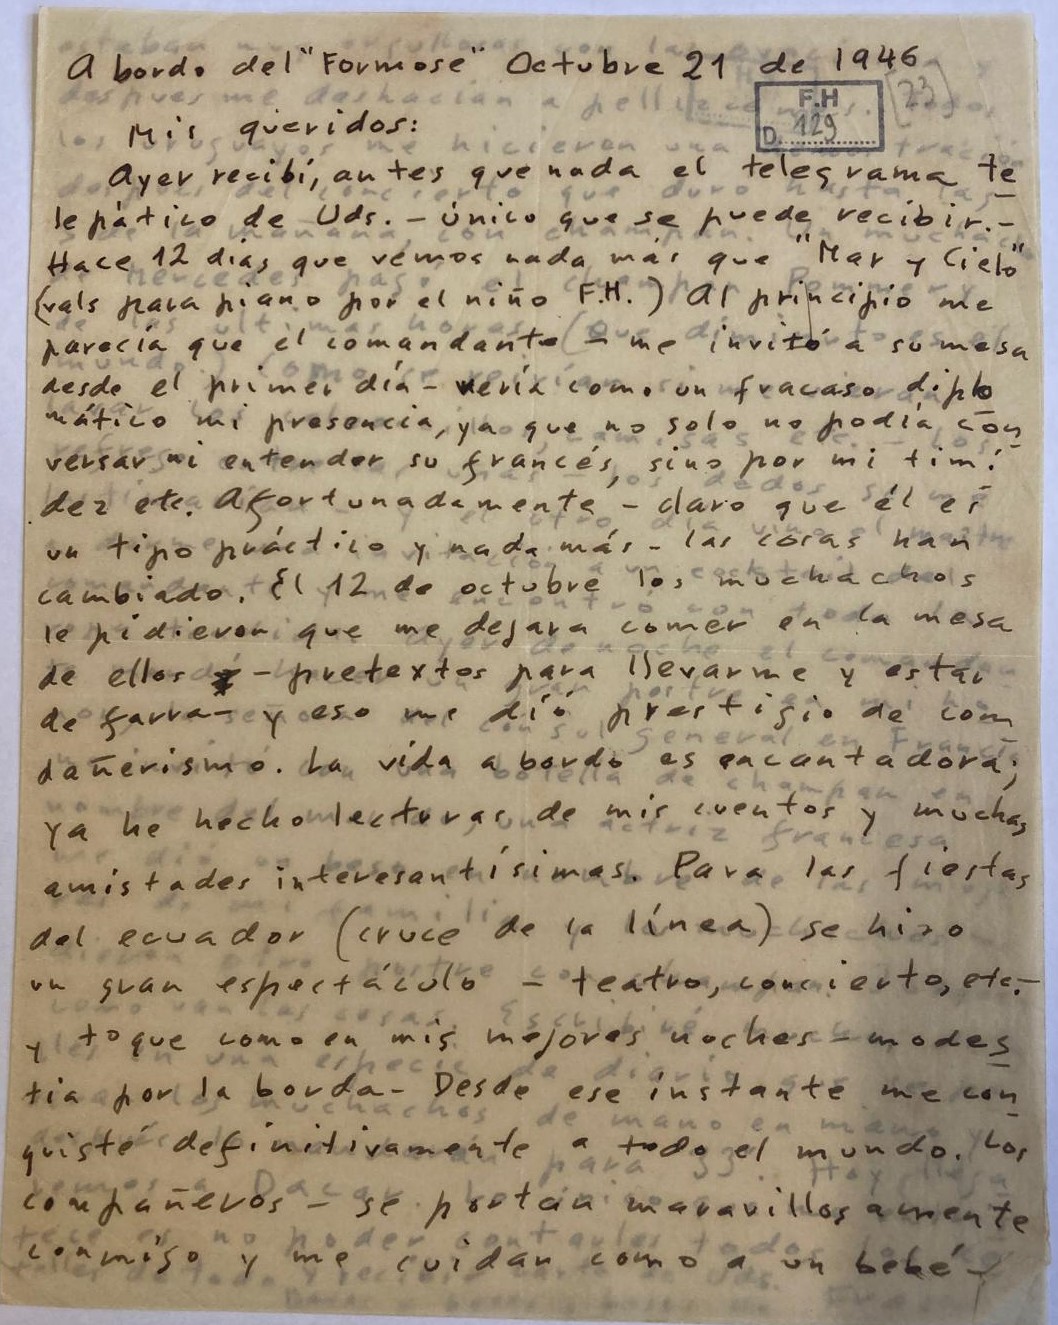 A bordo del "Formose" Octubre 21 de 1946
(23)
F.H
D. 129
Mis queridos:
Ayer recibí, antes que nada el telegrama te
lepático de Uds. - único que se puede recibir.-
Hace 12 días que vemos nada más que "Mar y Cielo"
(vals para piano por el niño F.H.) Al principio me
parecía que el comandante - me invitó a su mesa
desde el primer día - vería como un fracaso diplo
mático mi presencia, ya que no solo no podía con
versar ni entender su francés, sino por mi timi
dez etc. Afortunadamente - claro que él es
un tipo práctico y nada más - las cosas han
cambiado. El 12 de octubre los muchachos
le pidieron que me dejara comer en la mesa
de ellos - pretextos para llevarme y estar
de farra - y eso me dió prestigio de com
pañerismo. La vida a bordo es encantadora;
ya he hecho lecturas de mis cuentos y muchas
amistades interesantísimas. Para las fiestas
del ecuador (cruce de la línea) se hizo
un gran espectáculo - teatro, concierto, etc.-
y toque como en mis mejores noches - modes
tia por la borda - Desde ese instante me con
quisté definitivamente a todo el mundo. Los
compañeros - se portan maravillosamente
conmigo y me cuidan como a un bebé -